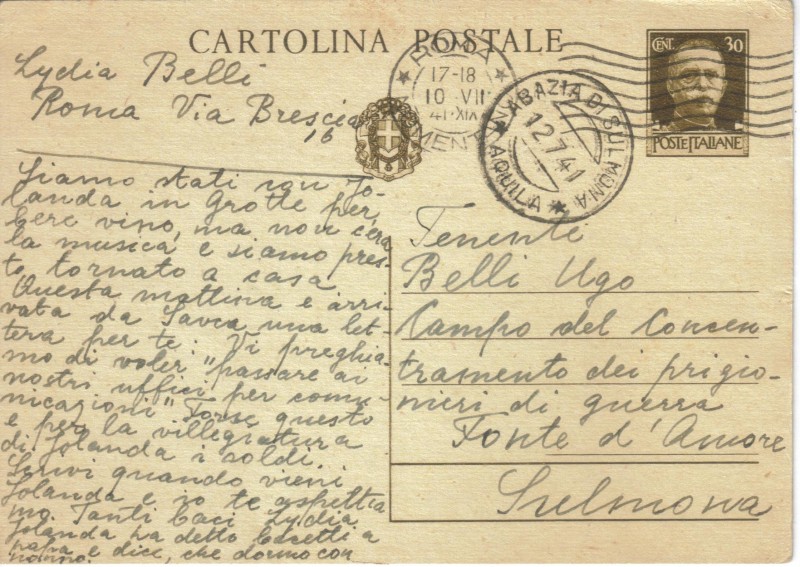 CARTOLINA POSTALE
Lydia Belli
Roma Via Brescia
16
ROMA
17-18
10 VII
41-XIX
MENT
ABAZIA DI SULMONA
12.7.41
AQUILA
CENT. 30
POSTE ITALIANE
Siamo stati con Jo-
landa in Grotte per
bere vino, ma non c'era
la musica e siamo pres-
to tornato a casa.
Questa mattina e arri-
vata da Savca una let-
tera per te. Vi preghia-
mo di voler "passare ai
nostri uffici per comu-
nicazioni" Forse questo
e per la villegiatura
di Jolanda i soldi.
Scrivi quando vieni
Jolanda e io te aspettia-
mo. Tanti baci Lydia.
Jolanda ha detto bacetti a
papa e dice, che dormo con
nonno.
Tenente
Belli Ugo
Campo del Concen-
tramento dei prigio-
nieri di guerra
Fonte d'Amore
Sulmona